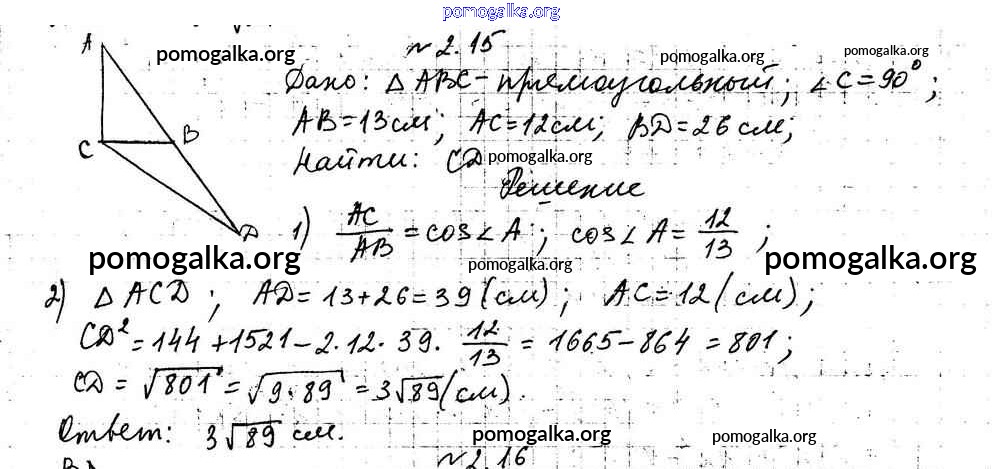 pomogalka.org
№ 2.15
pomogalka.org pomogalka.org pomogalka.org
Дано: △ ABC - прямоугольный; ∠C = 90°;
AB = 13 см; AC = 12 см; BD = 26 см;
Найти: CD
pomogalka.org
Решение
A
B
C
D
1) AC/AB = cos∠A; cos∠A = 12/13;
pomogalka.org pomogalka.org pomogalka.org
2) △ ACD; AD = 13 + 26 = 39 (см); AC = 12 (см);
CD² = 144 + 1521 - 2·12·39· 12/13 = 1665 - 864 = 801;
CD = √801 = √9·89 = 3√89 (см).
Ответ: 3√89 см.
pomogalka.org pomogalka.org
№ 2.16